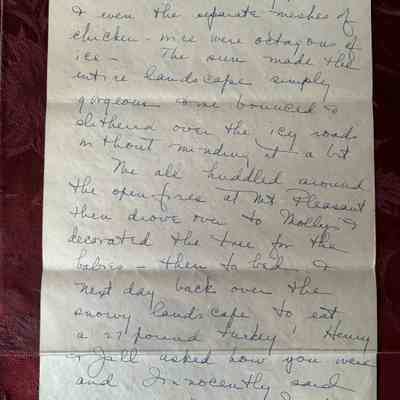 & even the separate meshes of
chicken-wire were octagons of
ice — The sun made the
entire landscape simply
gorgeous & we bounced &
slithered over the icy roads
without minding it a bit
We all huddled around
the open-fires at Mt Pleasant
then drove over to Molly's &
decorated the tree for the
babies — then to bed &
next day back over the
snowy landscape to eat
a 27 pound turkey! Henry
& Jall asked how you were
and I innocently said